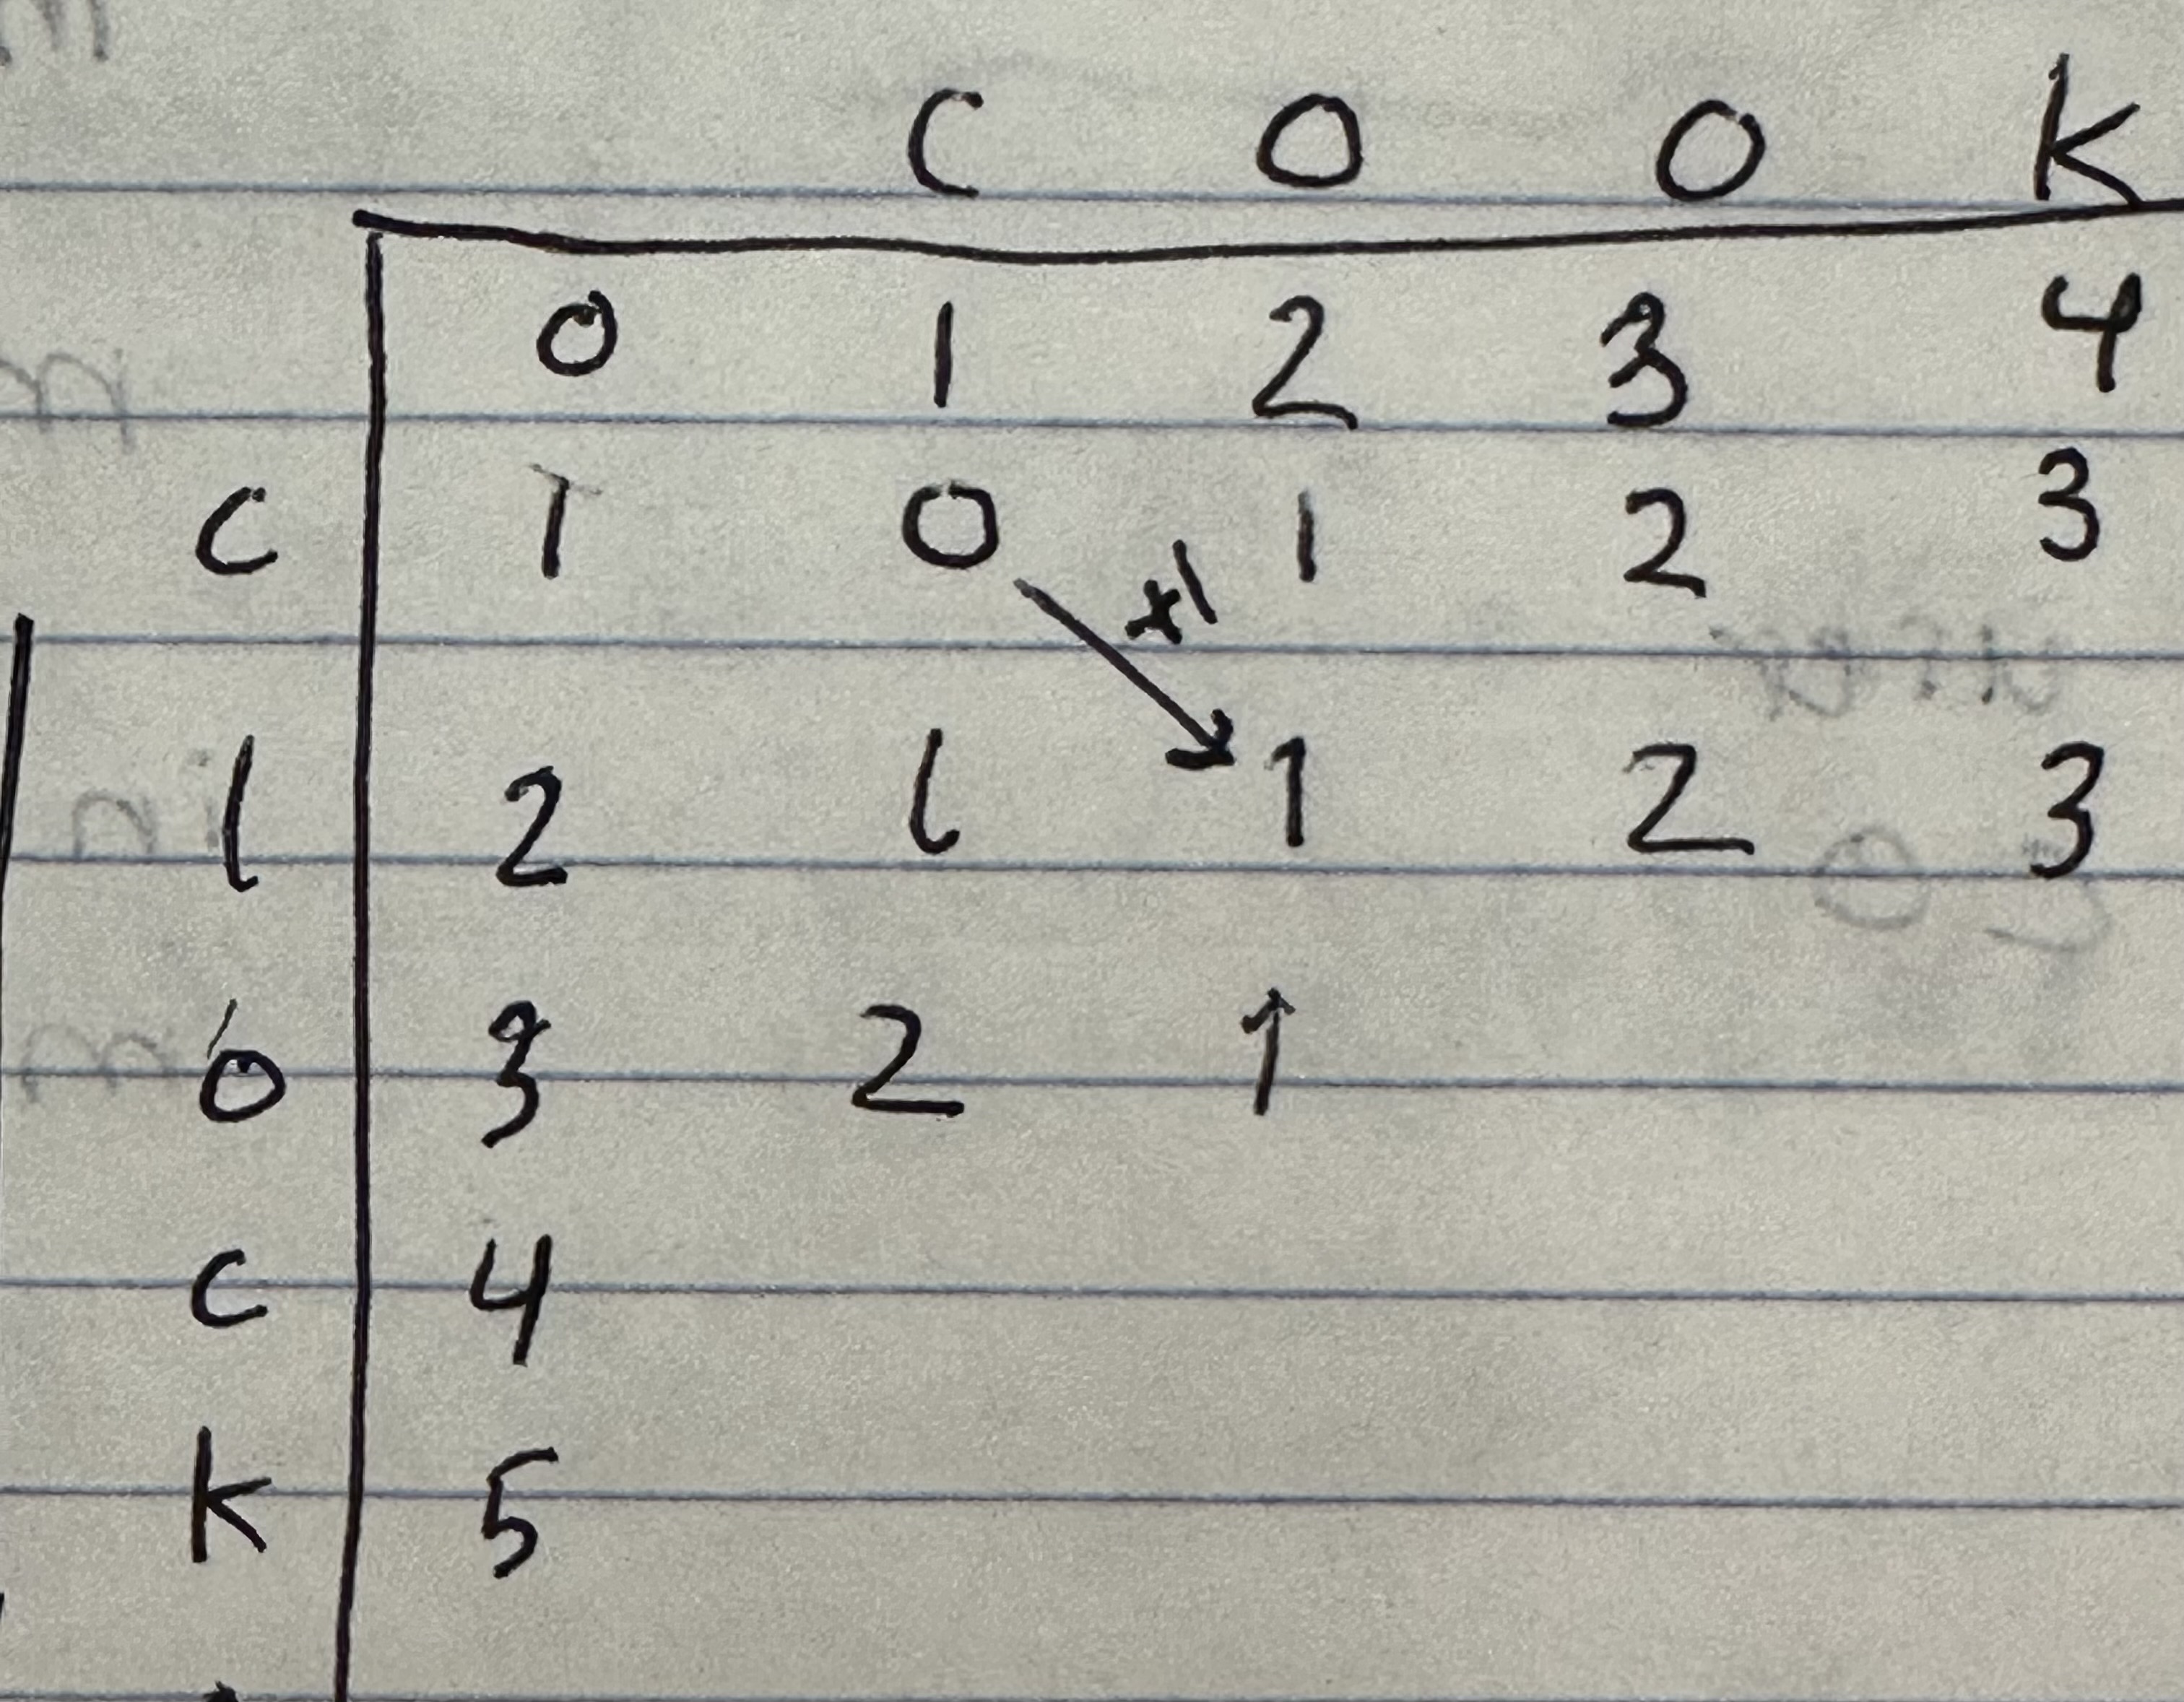 C O O K
0 1 2 3 4
C 1 0 1 2 3
+1
l 2 1 1 2 3
O 3 2 1
C 4
K 5